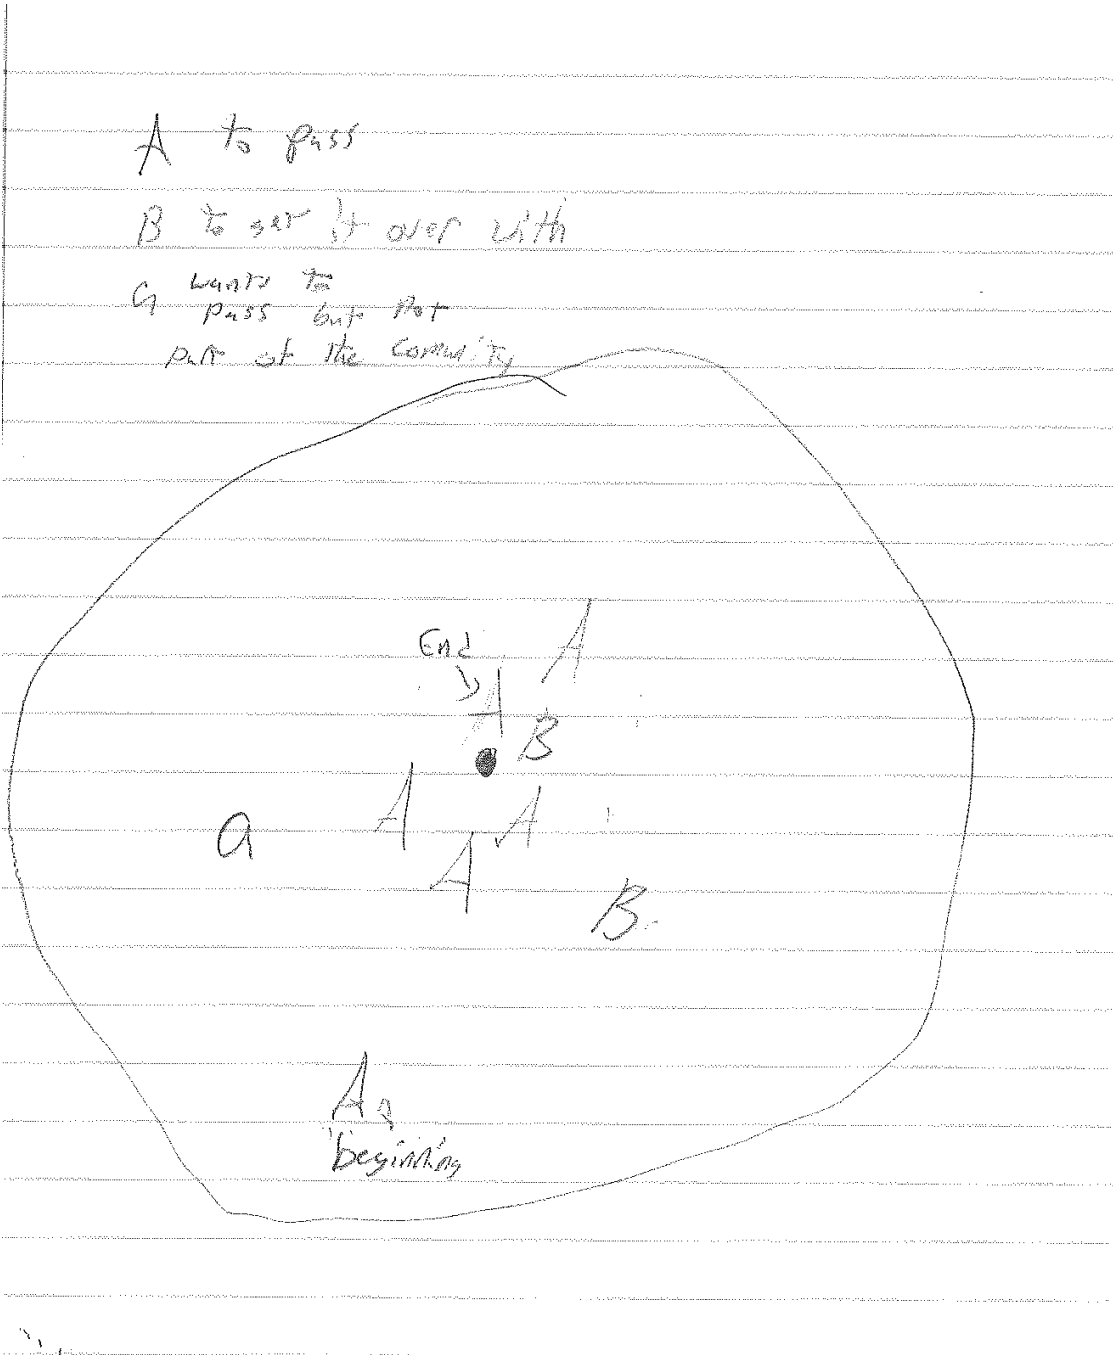 A to pass
B to get it over with
a wants to
pass but not
part of the comunity
End
A
A
B
A
a
A
A
B
A
beginning